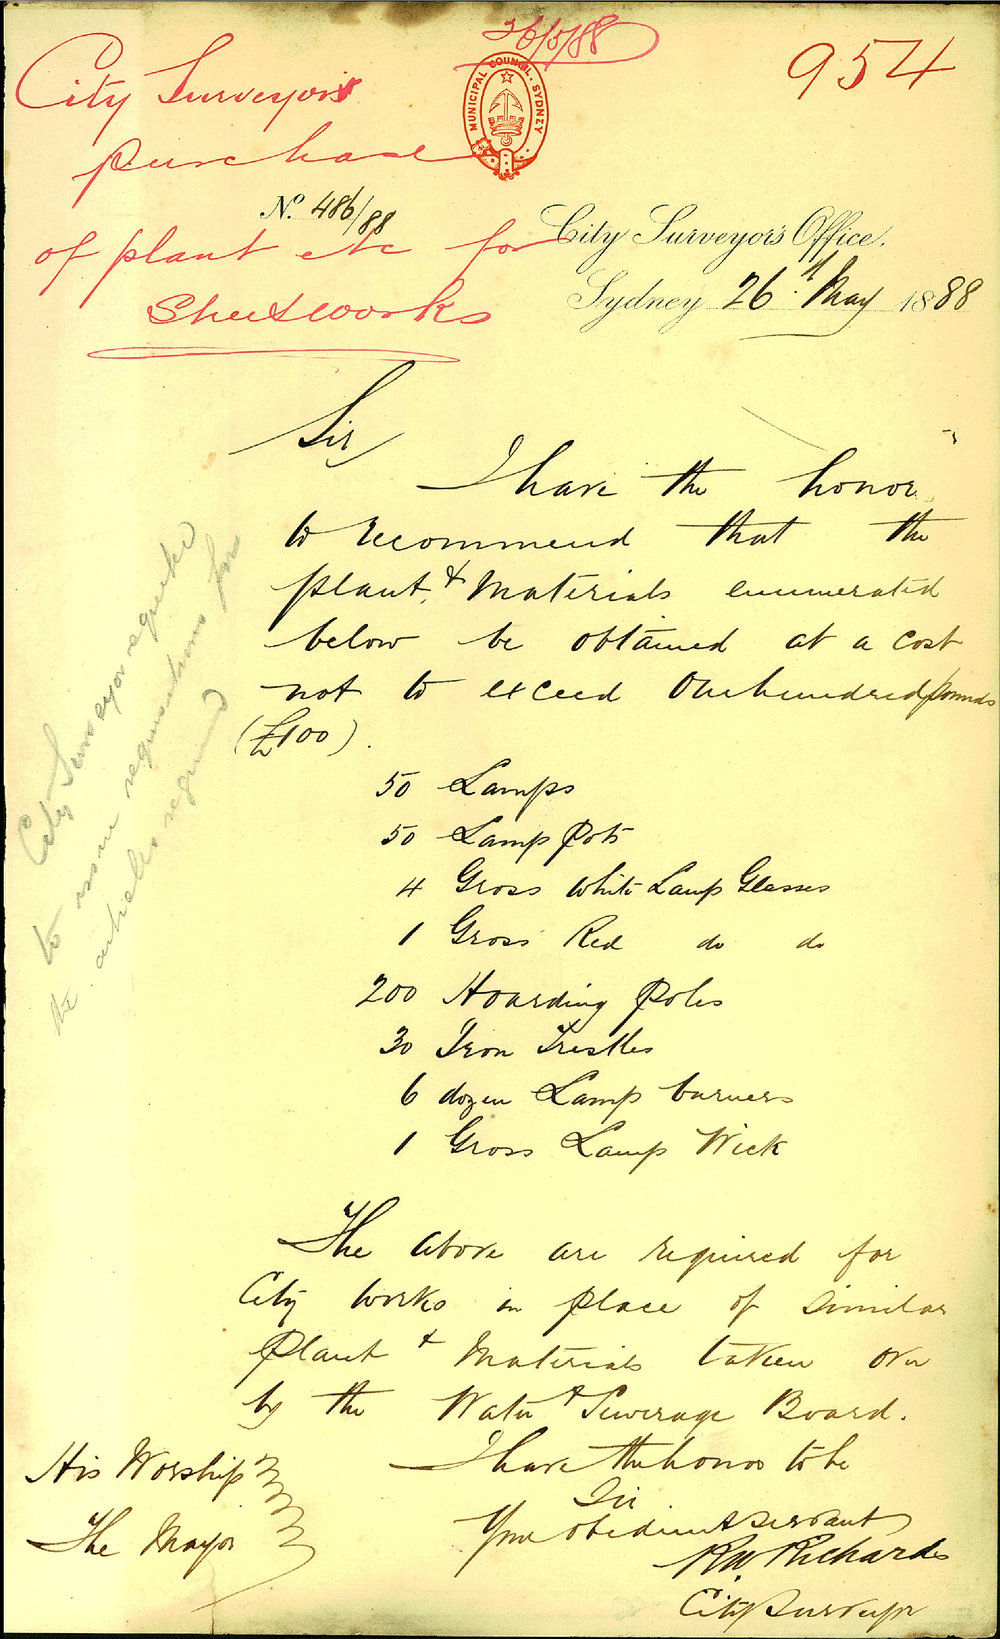 26/5/88
954
City Surveyors
purchase
of plant etc for
Streetworks
MUNICIPAL COUNCIL. SYDNEY
No. 486/88
City Surveyor's Office.
Sydney 26th May 1888
Sir
I have the honor
to recommend that the
plant, & Materials enumerated
below be obtained at a cost
not to exceed One hundred pounds
(£100).
50 Lamps
50 Lamp Pots
4 Gross White Lamp Glasses
1 Gross Red do do
200 Hoarding Poles
30 Iron Trestles
6 dozen Lamp burners
1 Gross Lamp Wick
The above are required for
City works in place of similar
Plant & Materials taken over
by the Water & Sewerage Board.
I have the honor to be
Sir
Your obedient servant
R W Richards
City Surveyor
His Worship
The Mayor
City Surveyor requested
to issue requisitions for
the articles required